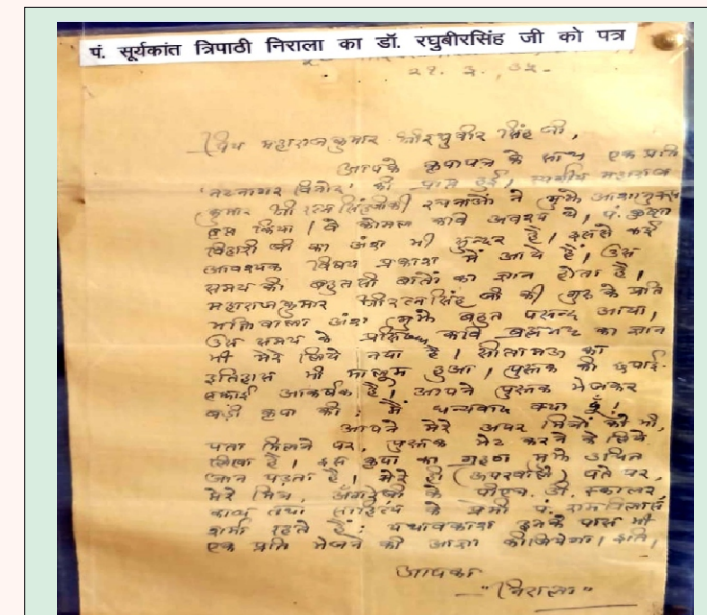 पं. सूर्यकांत त्रिपाठी निराला का डॉ. रघुबीरसिंह जी को पत्र
प्रिय महाराजकुमार श्रीरघुवीर सिंह जी,
आपके कृपापत्र के साथ एक प्रति
'नटनागर विनोद' की प्राप्त हुई, स्वर्गीय महाराज
कुमार श्री रत्न सिंहजीकी रचनाओं ने मुझे
किया। वे कोमल कवि अवश्य थे, पं. कृष्ण
बिहारी जी का अंश भी सुन्दर है, इससे कई
आवश्यक विषय प्रकाश में आये हैं, उस
समय की बहुतसी बातों का ज्ञान होता है,
महाराजकुमार श्रीरत्नसिंह जी की गुरु के प्रति
भक्तिवाला अंश मुझे बहुत पसन्द आया,
उस समय के कवि का ज्ञान
भी मेरे लिये नया है। सीतामऊ का
इतिहास भी मालूम हुआ, पुस्तक की छपाई-
सफाई आकर्षक है, आपने पुस्तक भेजकर
बड़ी कृपा की; मैं धन्यवाद क्या दूँ।
आपने मेरे अपर मित्रों को भी,
पता मिलने पर, पुस्तक भेंट करने के लिये
लिखा है। इस कृपा का ग्रहण मुझे उचित
जान पड़ता है। मेरे ही (ऊपरवाले) पते पर,
मेरे मित्र, अँगरेजी के पीएच. डी. स्कालर,
काव्य तथा साहित्य के प्रेमी पं. रामविलास
शर्मा रहते हैं; यथावकाश इनके पास भी
एक प्रति भेजने की आज्ञा कीजियेगा। इति,
आपका
—"निराला"